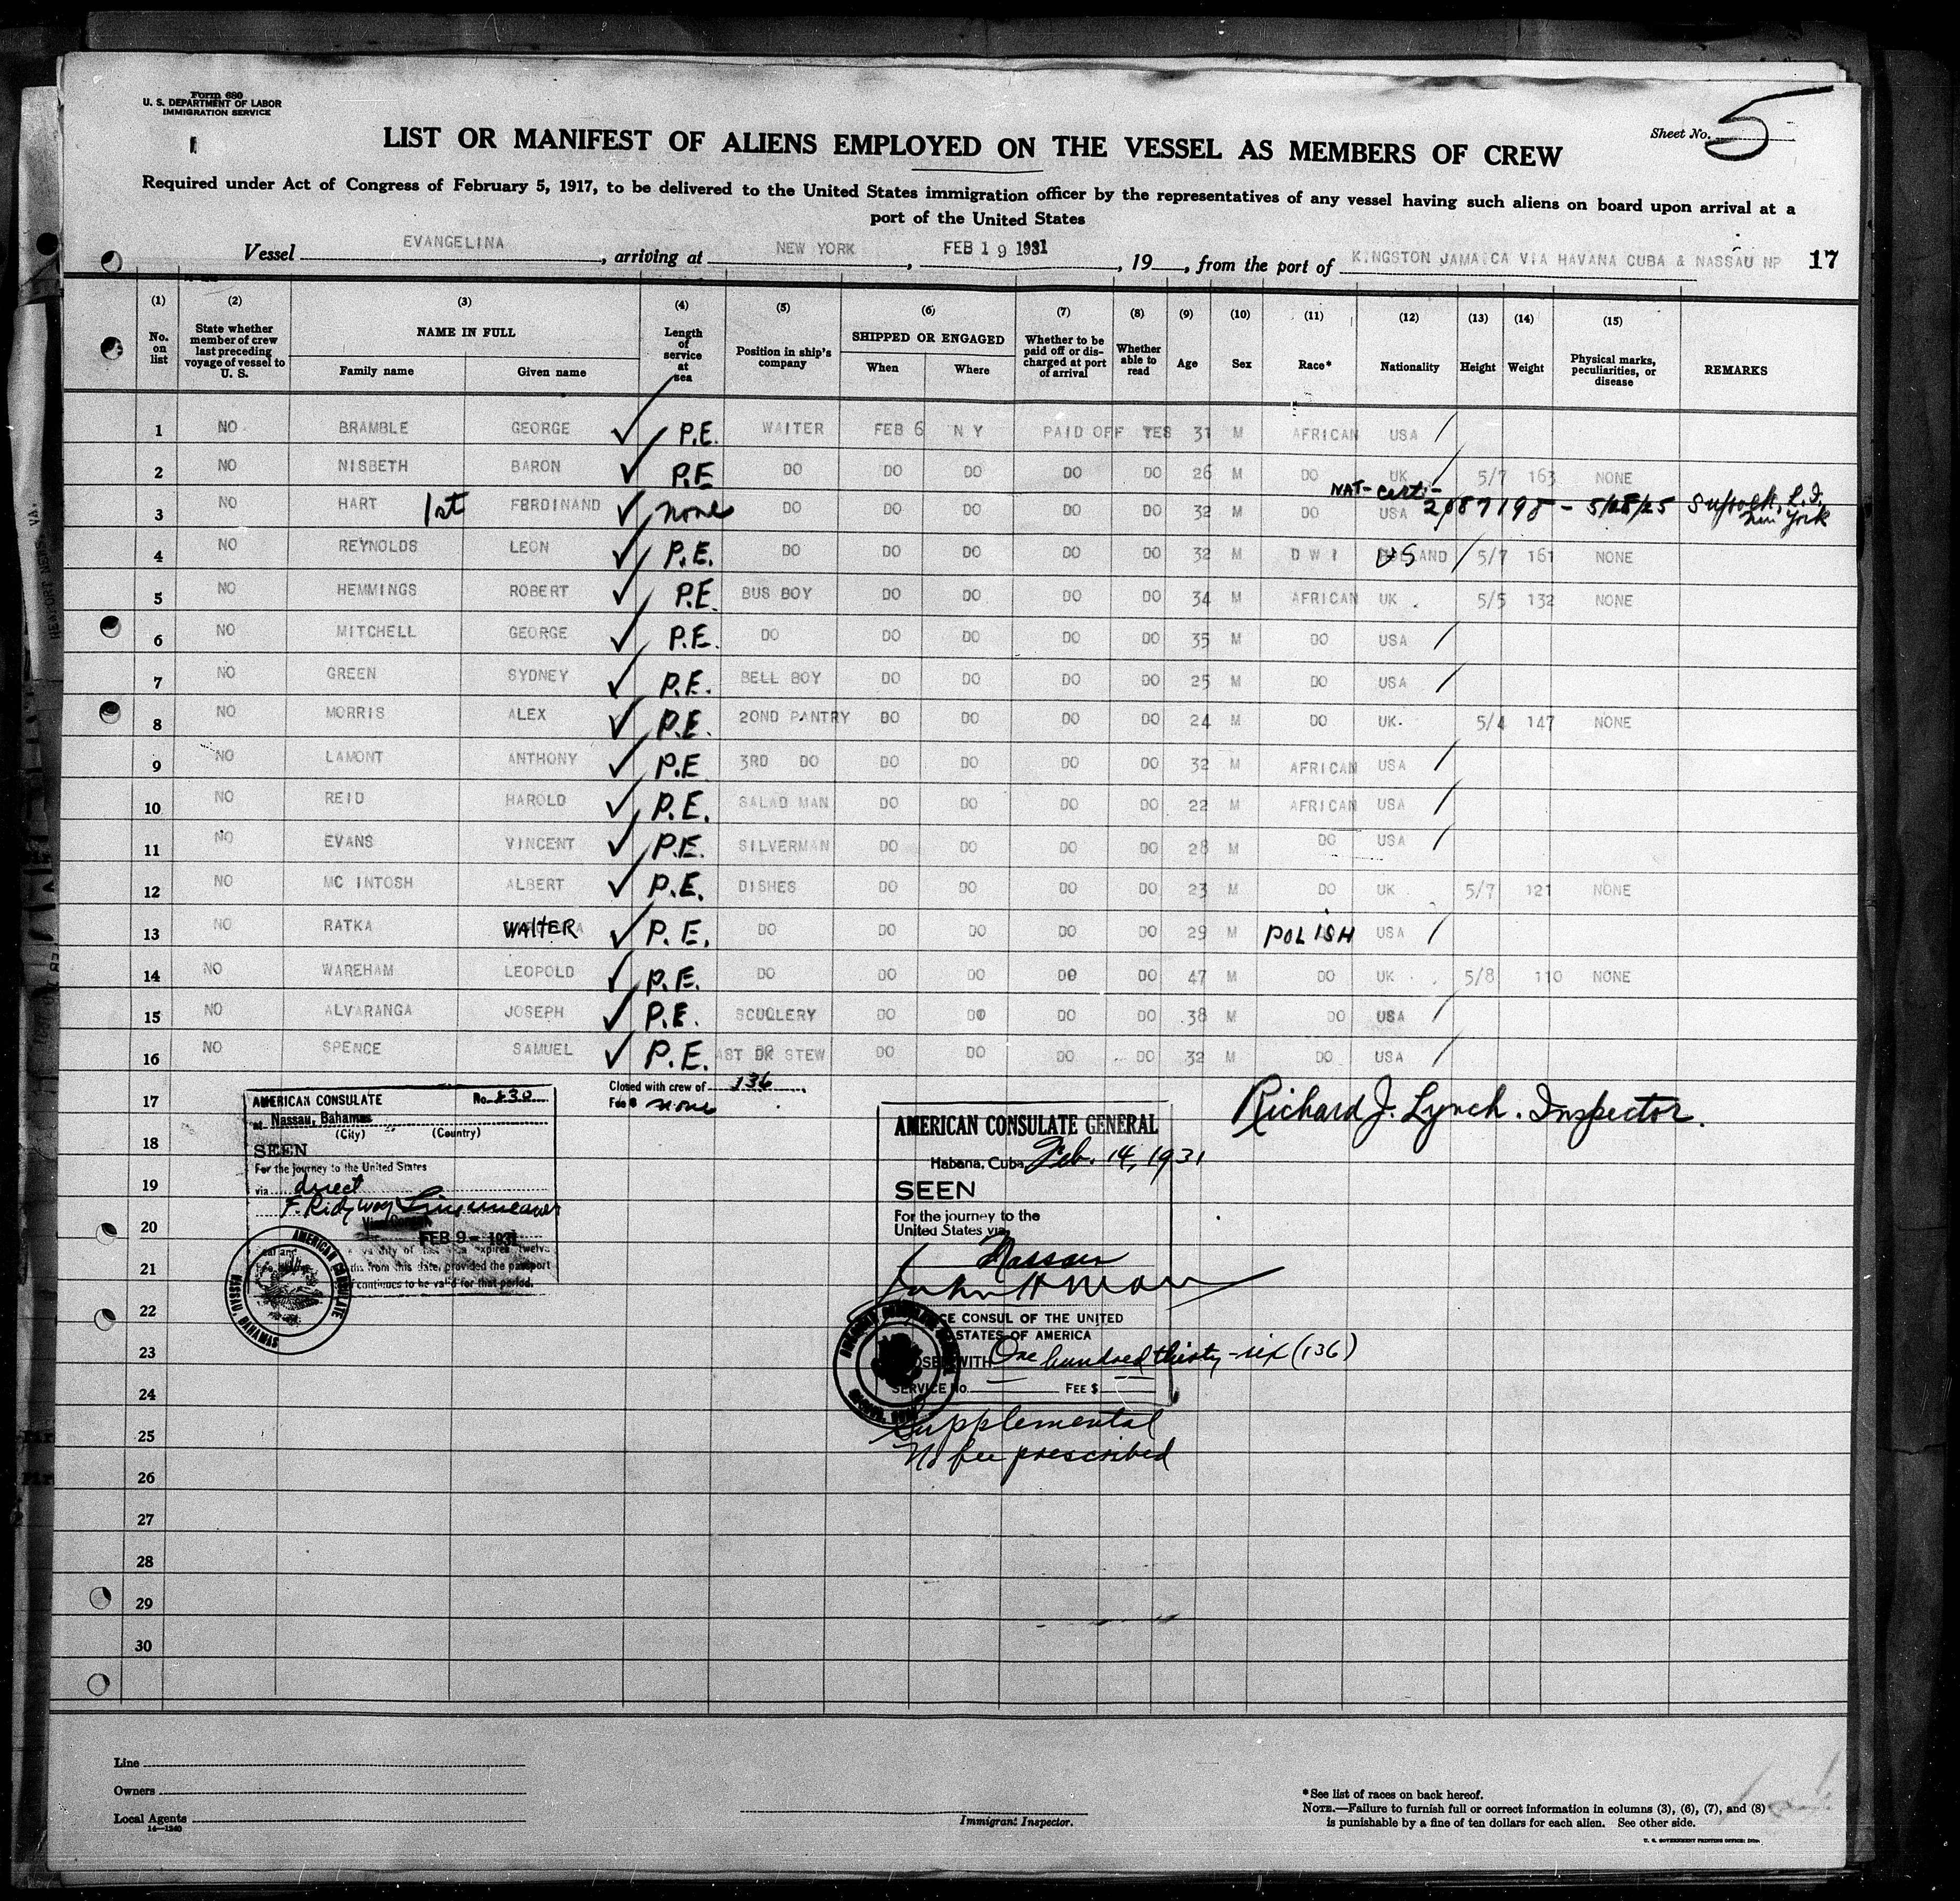 Form 680
U. S. DEPARTMENT OF LABOR
IMMIGRATION SERVICE
Sheet No. 5
LIST OR MANIFEST OF ALIENS EMPLOYED ON THE VESSEL AS MEMBERS OF CREW
Required under Act of Congress of February 5, 1917, to be delivered to the United States immigration officer by the representatives of any vessel having such aliens on board upon arrival at a
port of the United States
Vessel EVANGELINA, arriving at NEW YORK, FEB 19 1931, 19, from the port of KINGSTON JAMAICA VIA HAVANA CUBA & NASSAU NP 17
(1) (2) (3) (4) (5) (6) (7) (8) (9) (10) (11) (12) (13) (14) (15)
No. on list
State whether member of crew last preceding voyage of vessel to U. S.
NAME IN FULL
Family name
Given name
Length of service at sea
Position in ship's company
SHIPPED OR ENGAGED
When
Where
Whether to be paid off or discharged at port of arrival
Whether able to read
Age
Sex
Race*
Nationality
Height
Weight
Physical marks, peculiarities, or disease
REMARKS
1 NO BRAMBLE GEORGE ✓ P.E. WAITER FEB 6 N Y PAID OFF YES 31 M AFRICAN USA /
2 NO NISBETH BARON ✓ P.E DO DO DO DO DO 26 M DO UK / 5/7 163 NONE
NAT- certi-
3 NO HART 1st FERDINAND ✓ none DO DO DO DO DO 32 M DO USA 2087198 - 5/28/25 Suffolk, L.I. New York
4 NO REYNOLDS LEON ✓ P.E. DO DO DO DO DO 32 M D W I US / 5/7 161 NONE
5 NO HEMMINGS ROBERT ✓ P.E BUS BOY DO DO DO DO 34 M AFRICAN UK . 5/5 132 NONE
6 NO MITCHELL GEORGE ✓ P.E. DO DO DO DO DO 35 M DO USA /
7 NO GREEN SYDNEY ✓ P.E. BELL BOY DO DO DO DO 25 M DO USA /
8 NO MORRIS ALEX ✓ P.E. 2OND PANTRY DO DO DO DO 24 M DO UK. 5/4 147 NONE
9 NO LAMONT ANTHONY ✓ P.E 3RD DO DO DO DO DO 32 M AFRICAN USA /
10 NO REID HAROLD ✓ P.E. SALAD MAN DO DO DO DO 22 M AFRICAN USA /
11 NO EVANS VINCENT ✓ P.E. SILVERMAN DO DO DO DO 28 M DO USA /
12 NO MC INTOSH ALBERT ✓ P.E. DISHES DO DO DO DO 23 M DO UK . 5/7 121 NONE
13 NO RATKA WALTER ✓ P.E. DO DO DO DO DO 29 M POLISH USA /
14 NO WAREHAM LEOPOLD ✓ P.E. DO DO DO DO DO 47 M DO UK . 5/8 110 NONE
15 NO ALVARANGA JOSEPH ✓ P.E. SCULLERY DO DO DO DO 38 M DO USA /
16 NO SPENCE SAMUEL ✓ P.E. AST DK STEW DO DO DO DO 32 M DO USA /
Closed with crew of 136
Fee $ none
17
18
19
20
21
22
23
24
25
26
27
28
29
30
AMERICAN CONSULATE No. 230
at Nassau, Bahamas
(City) (Country)
SEEN
For the journey to the United States
via direct
F. Ridgway Lineweaver
Vice Consul
FEB 9 - 1931
expires twelve
from this date, provided the passport
continues to be valid for that period.
AMERICAN CONSULATE
NASSAU, BAHAMAS
AMERICAN CONSULATE GENERAL
Habana, Cuba, Feb. 14, 1931
SEEN
For the journey to the
United States via
Nassau
VICE CONSUL OF THE UNITED
STATES OF AMERICA
CLOSED WITH One hundred thirty-six (136)
SERVICE No. FEE $
Supplemental
No fee prescribed
Richard J. Lynch. Inspector.
Line
Owners
Local Agents
14—1240
Immigrant Inspector.
*See list of races on back hereof.
NOTE.—Failure to furnish full or correct information in columns (3), (6), (7), and (8)
is punishable by a fine of ten dollars for each alien. See other side.
U. S. GOVERNMENT PRINTING OFFICE: